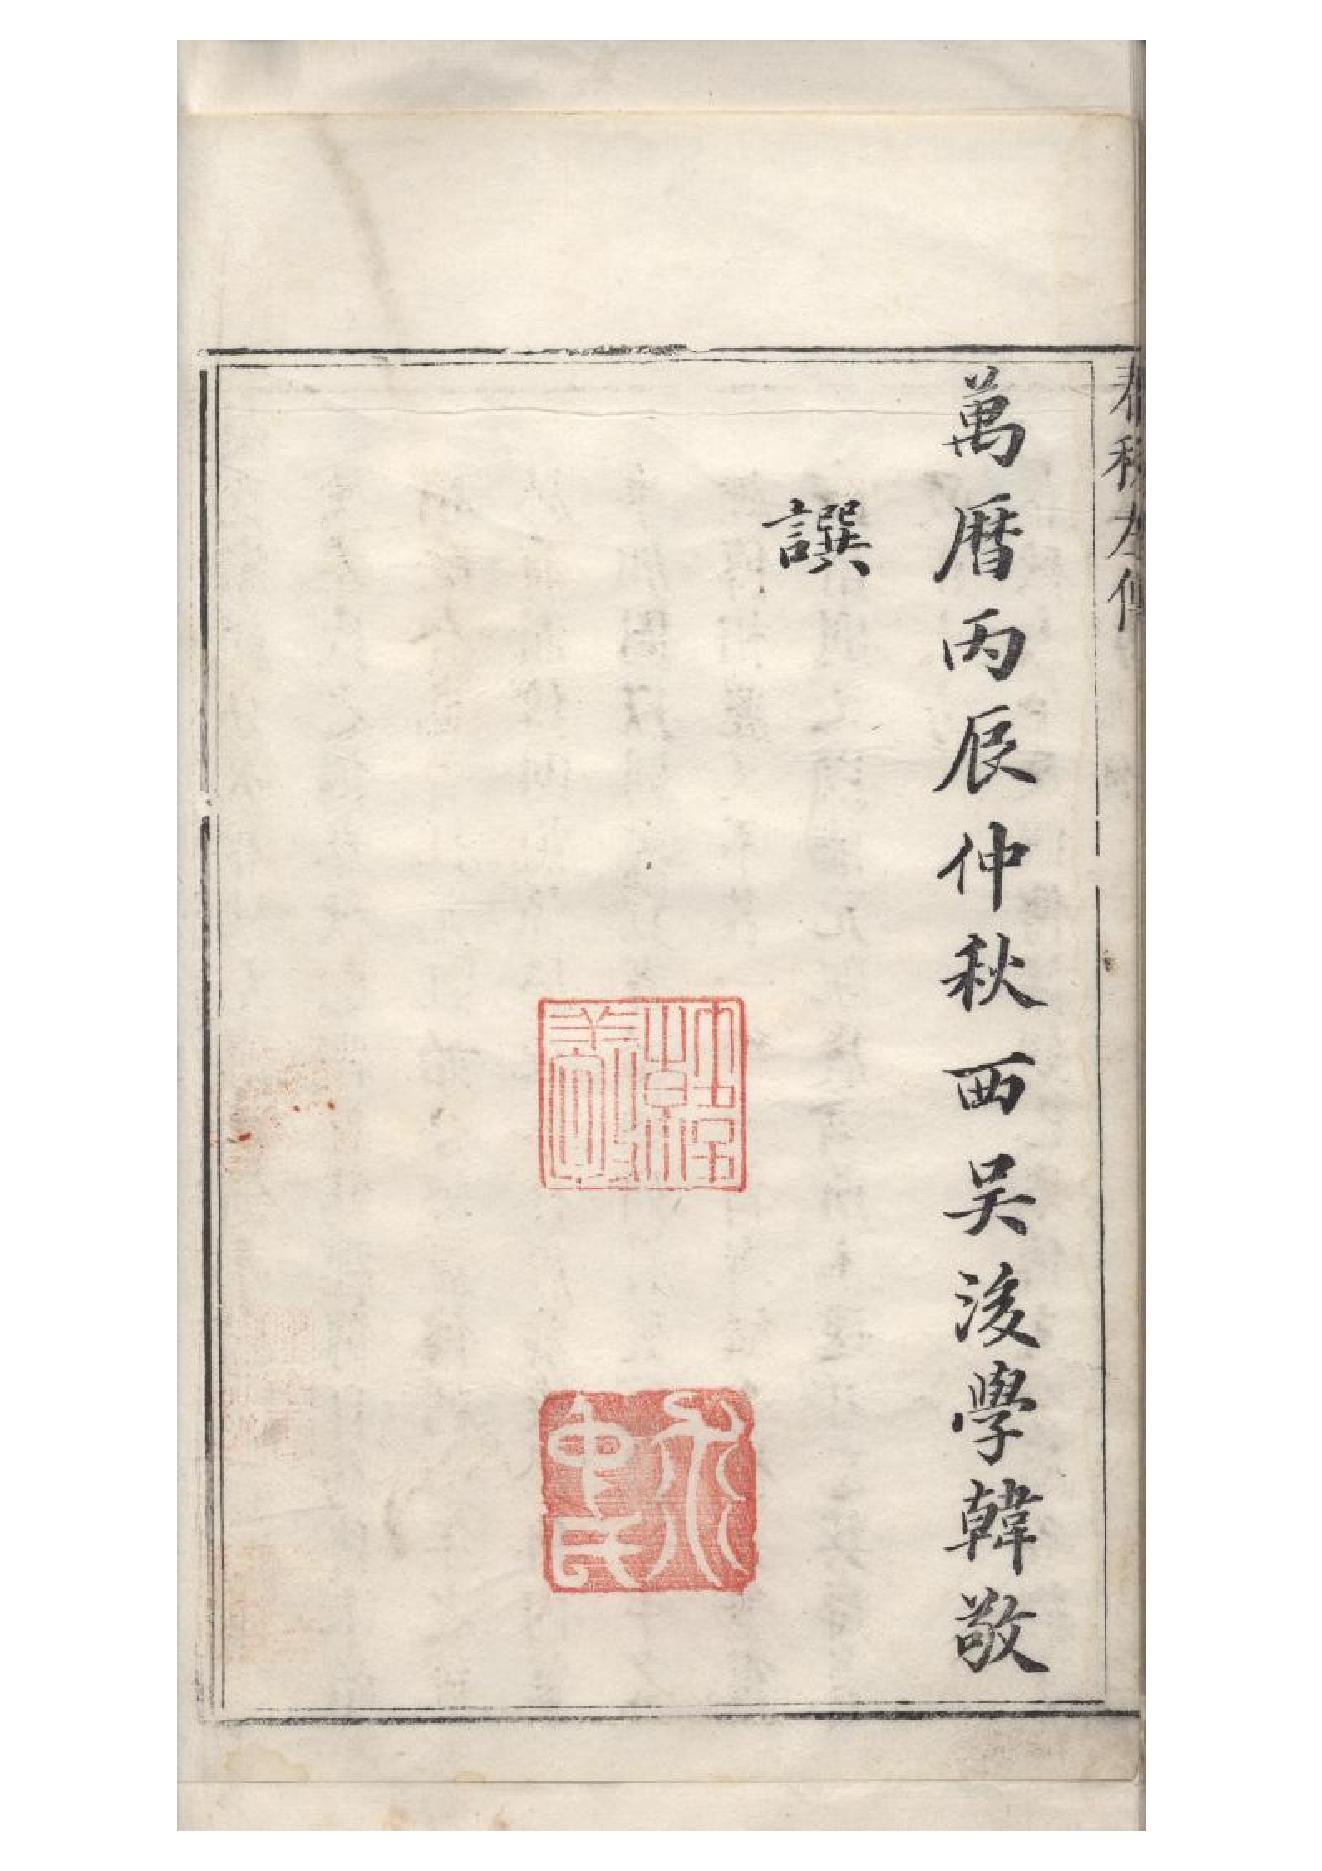 春秋左傳
萬曆丙辰仲秋西吳後學韓敬
譔